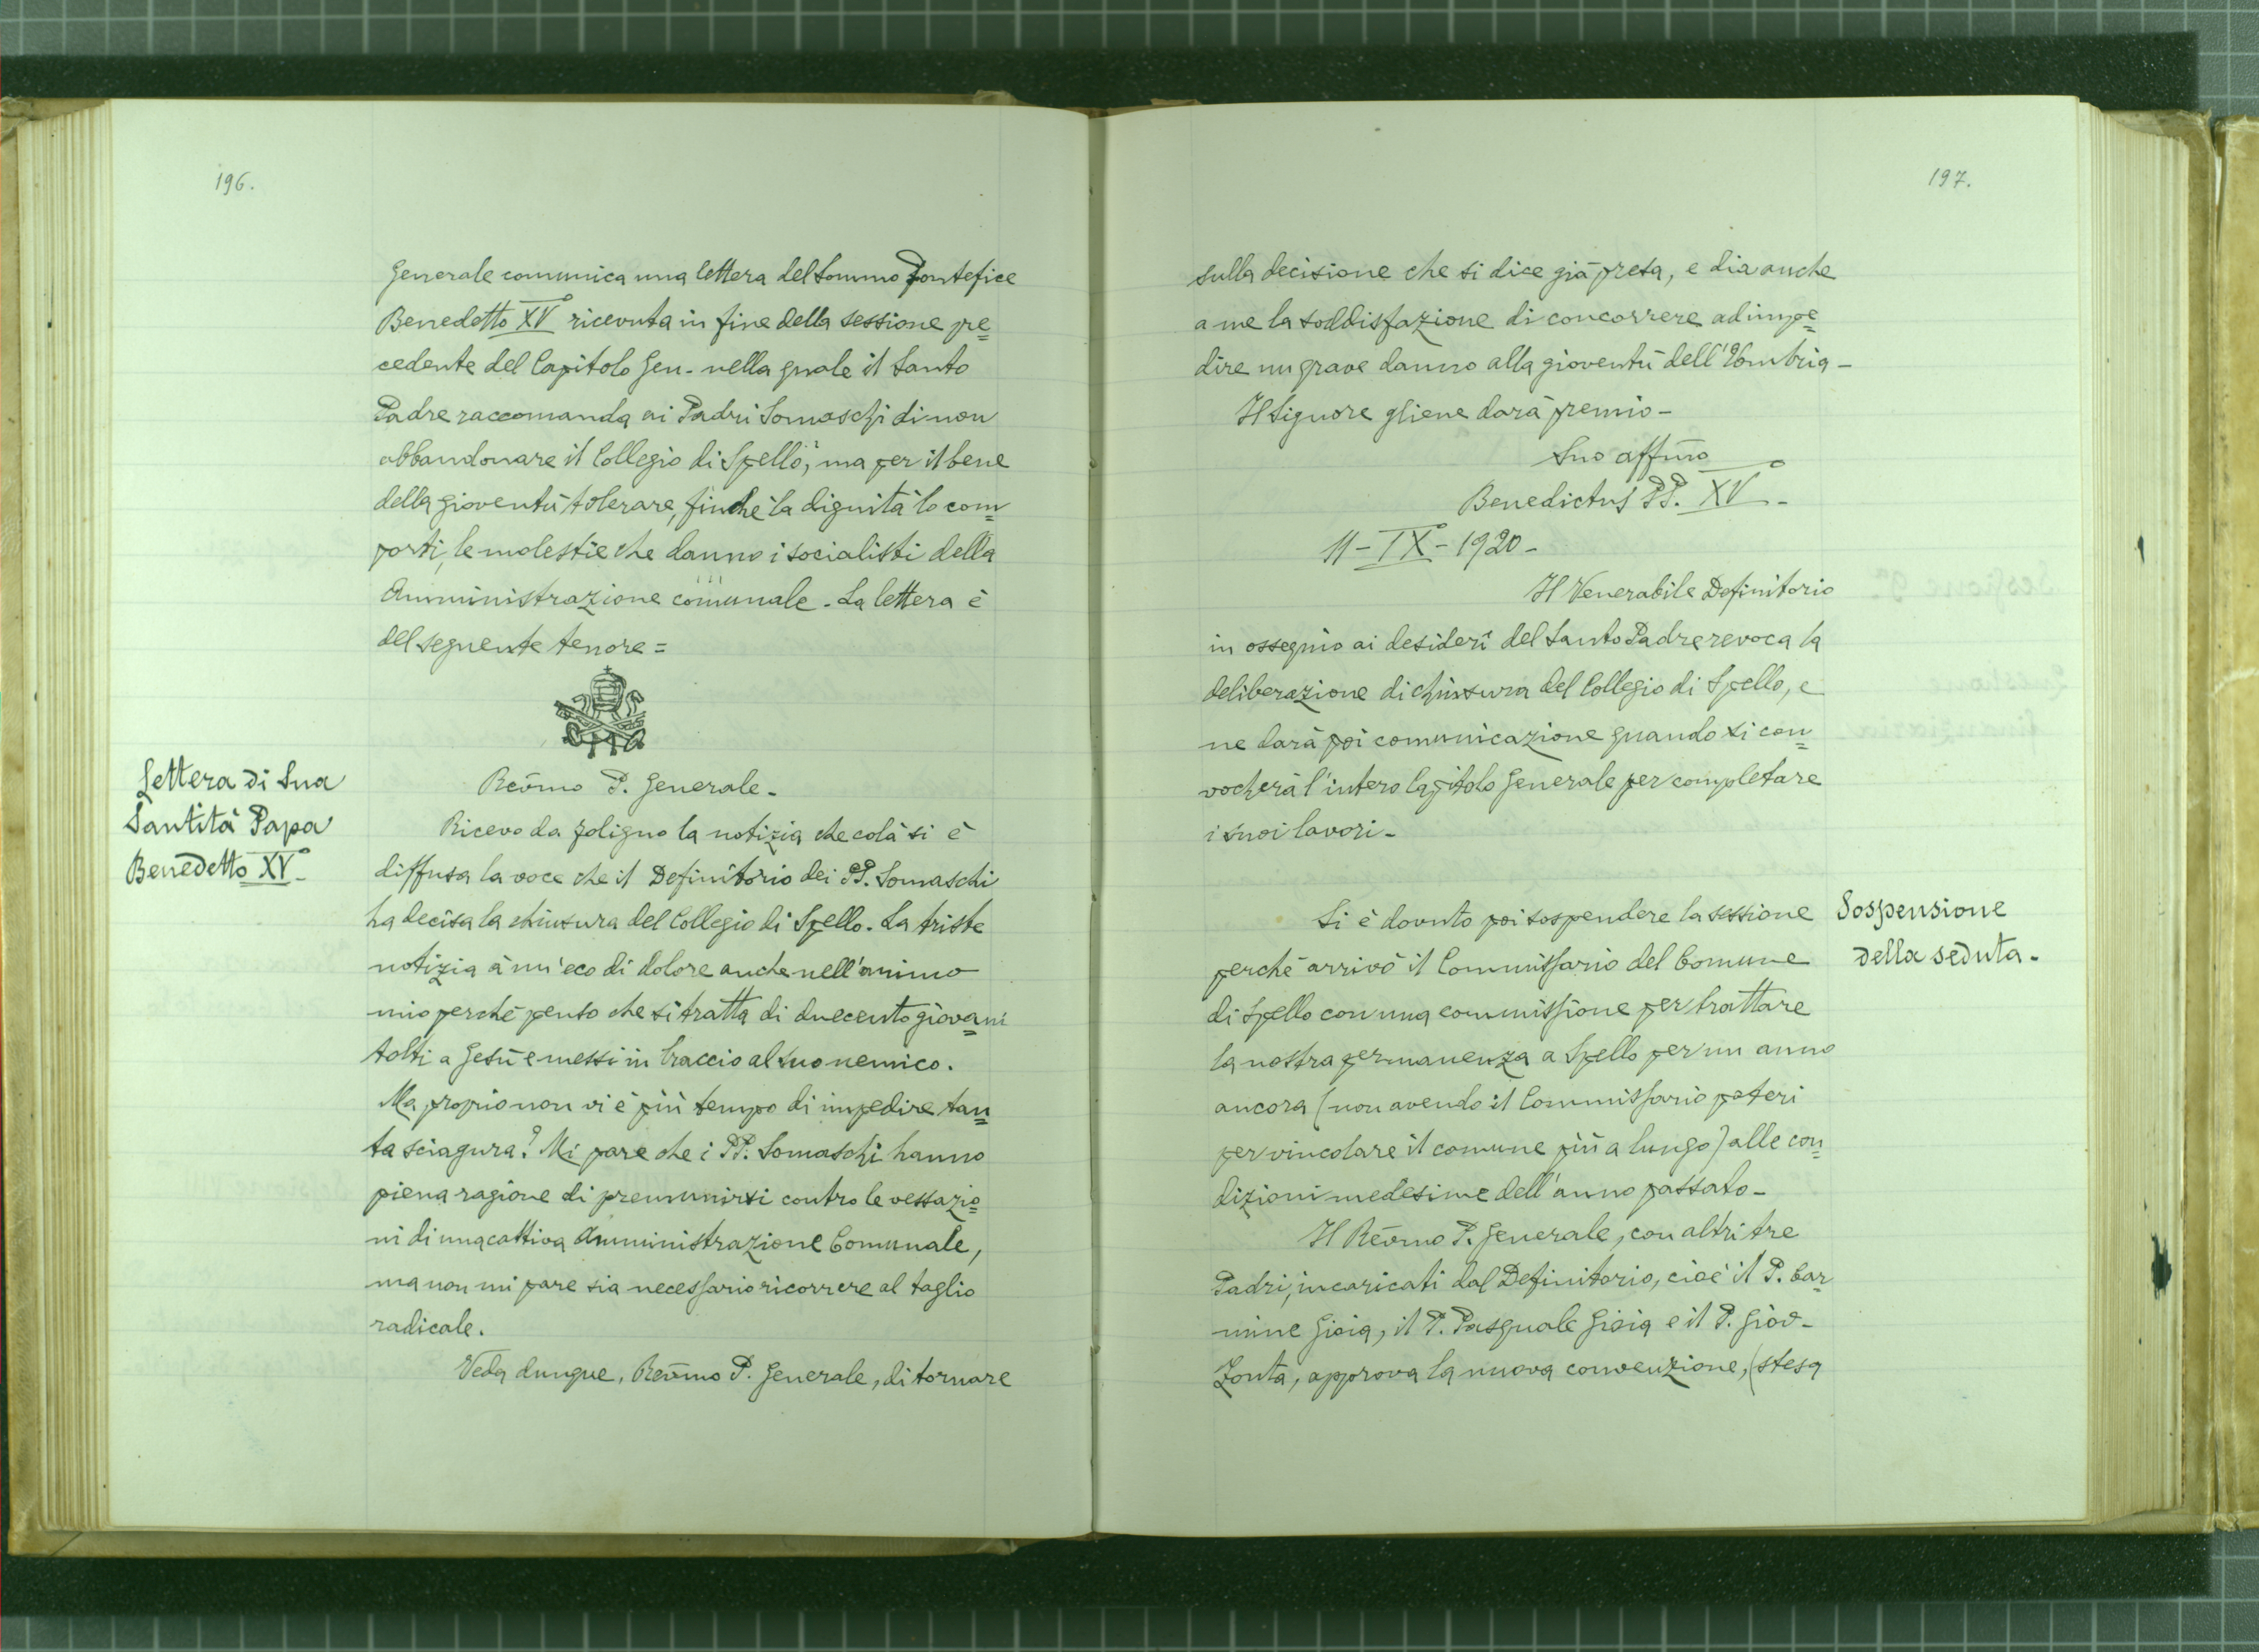 196.
Generale comunica una lettera del Sommo Pontefice
Benedetto XVº ricevuta in fine della sessione pre=
cedente del Capitolo Gen- nella quale il Santo
Padre raccomanda ai Padri Somaschi di non
abbandonare il Collegio di Spello, ma per il bene
della gioventù tolerare, finchè la dignità lo com=
porti, le molestie che danno i socialisti della
Amministrazione comunale. La lettera è
del seguente tenore =
Lettera di Sua
Santità Papa
Benedetto XVº.
Rev̄mo P. Generale.
Ricevo da Foligno la notizia che colà si è
diffusa la voce che il Definitorio dei PP. Somaschi
ha decisa la chiusura del Collegio di Spello. La triste
notizia à un'eco di dolore anche nell'animo
mio perchè penso che si tratta di duecento giovani
tolti a Gesù e messi in braccio al suo nemico.
Ma proprio non vi è più tempo di impedire tan=
ta sciagura? Mi pare che i PP. Somaschi hanno
piena ragione di premunirsi contro le vessazio=
ni di una cattiva Amministrazione Comunale,
ma non mi pare sia necessario ricorrere al taglio
radicale.
Veda dunque, Rev̄mo P. Generale, di tornare
197.
sulla decisione che si dice già presa, e dia anche
a me la soddisfazione di concorrere ad impe=
dire un grave danno alla gioventù dell'Umbria -
Il Signore gliene darà premio -
Suo affm̄o
Benedictus PP. XVº -
11 - IXº - 1920 -
Il Venerabile Definitorio
in ossequio ai desideri del Santo Padre revoca la
deliberazione di chiusura del Collegio di Spello, e
ne darà poi comunicazione quando si con=
vocherà l'intero Capitolo Generale per completare
i suoi lavori -
Si è dovuto poi sospendere la sessione
perchè arrivò il Commissario del Comune
di Spello con una commissione per trattare
la nostra permanenza a Spello per un anno
ancora (non avendo il Commissario poteri
per vincolare il comune più a lungo) alle con=
dizioni medesime dell'anno passato -
Sospensione
della seduta.
Il Rev̄mo P. Generale, con altri tre
Padri, incaricati dal Definitorio, cioè il P. Car=
mine Gioia, il P. Pasquale Gioia e il P. Giov-
Zonta, approva la nuova convenzione, (stesa